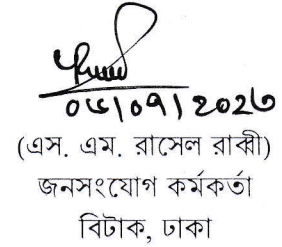 ০৬/০৭/২০২৩
(এস. এম. রাসেল রাব্বী)
জনসংযোগ কর্মকর্তা
বিটাক, ঢাকা